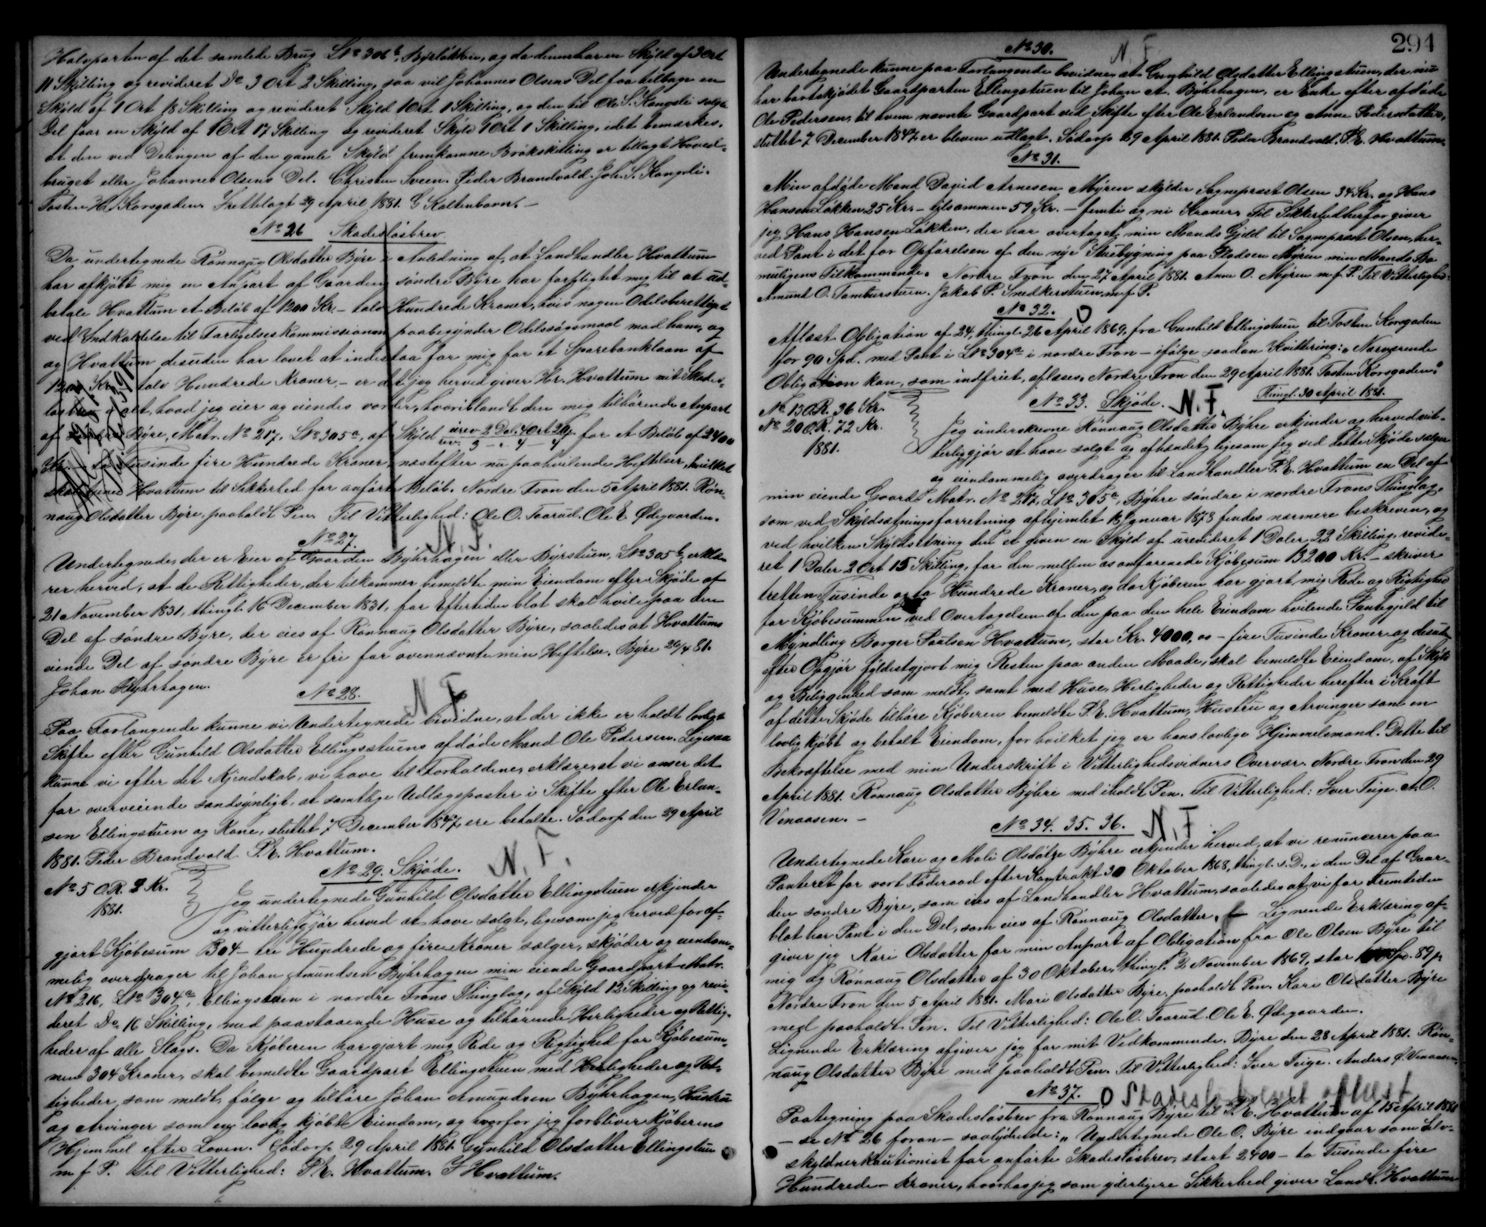 Halvparten af det samlede Brug L№ 306b, Byrløkken, og da denne har en Skyld af 3 Ort
11 Skilling og revideret Do 3 Ort 2 Skilling, saa vil Johannes Olsens Del faa tillagt en
Skyld af 1 Ort 18 Skilling og revideret Skyld 1 Ort 1 Skilling, og den til Ole S. Kongsli solgte
Del faar en Skyld af 1 Ort 17 Skilling og revideret Skyld 1 Ort 1 Skilling, idet bemærkes,
at den ved Delingen af den gamle Skyld fremkomne Brøkskilling er tillagt Hoved-
bruget eller Johannes Olsens Del. Christen Sveen. Peder Brandvold. Joh. S. Kongsli.
Tosten H. Korsgaden. Fretlagt 29 April 1881. G Kolbenhavn. —
№ 26 Skadesløsbrev.
Da undertegnede Rønnaug Olsdatter Byre i Anledning af, at Landhandler Hvattum
har afkjøbt mig en Anpart af Gaarden søndre Byre har forpligtet mig til at ud-
betale Hvattum et Beløb af 1200 Kr. — tolv Hundrede Kroner, hvis nogen Odelsberettiget
ved Indkaldelse til Forligelseskommissionen paabegynder Odelssøgsmaal mod ham, og
og Hvattum desuden har lovet at indestaa for mig for et Sparebanklaan af
1200 Kr. — tolv Hundrede Kroner — er det jeg herved giver Hr. Hvattum mit Skades-
løsbrev i alt, hvad jeg eier og eiendes vorder, hvoriblandt den mig tilhørende Anpart
af søndre Byre, Matr. № 217, L№ 305a, af Skyld urev. 2 Dal. 3 Ort 20 ß. for et Beløb af 2400
rev. 3 - " 4 - 4
Kr. — to Tusinde fire Hundrede Kroner, næstefter nu paahvilende Heftelser, hvilket
skal tjene Hvattum til Sikkerhed for anførte Beløb. Nordre Fron den 5 April 1881. Røn-
naug Olsdatter Byre, paaholdt Pen. Til Vitterlighed: Ole O. Toarud. Ole E. Ødegaarden.
№ 27. N. F.
Undertegnede, der er Eier af Gaarden Byhrhagen eller Byrstuen, L№ 305b, erklæ-
rer herved, at de Rettigheder, der tilkommer bemeldte min Eiendom efter Skjøde af
21 November 1831, thingl. 16 December 1831, for Eftertiden blot skal hvile paa den
Del af søndre Byre, der eies af Rønnaug Olsdatter Byre, saaledes at Hvattums
eiende Del af søndre Byre er fri for ovennævnte min Heftelse. Byre 29/4 81.
Johan Byhrhagen.
№ 28. N. F
Paa Forlangende kunne vi Undertegnede bevidne, at der ikke er holdt lovligt
Skifte efter Gunhild Olsdatter Ellingsstuens afdøde Mand Ole Pedersen. Ligesaa
kunne vi efter det Kjendskab, vi have til Forholdene, erklære, at vi anser det
for overveiende sandsynligt, at samtlige Udlægsposter i Skifte efter Ole Erland-
sen Ellingstuen og Kone, sluttet 7 December 1847, ere betalte. Sødorp den 29 April
1881. Peder Brandvold. P. E. Hvattum.
№ 29. Skjøde. N. F.
№ 5 O R. 2 Kr.
1881.
Jeg undertegnede Gunhild Olsdatter Ellingstuen erkjender
og vitterliggjør herved at have solgt, ligesom jeg herved for af-
gjort Kjøbesum 304 — tre Hundrede og fire Kroner sælger, skjøder og eiendom-
melig overdrager til Johan Amundsen Byhrhagen min eiende Gaardpart Matr.
№ 216, L№ 304a, Ellingstuen i nordre Frons Thinglag, af Skyld 12 Skilling og revi-
deret Do 16 Skilling, med paastaaende Huse og tilhørende Herligheder og Rettig-
heder af alle Slags. Da Kjøberen har gjort mig Rede og Rigtighed for Kjøbesum-
men 304 Kroner, skal bemeldte Gaardpart Ellingstuen med Herligheder og Ret-
tigheder, som meldt, følge og tilhøre Johan Amundsen Byhrhagen, Hustru
og Arvinger som en lovlig kjøbt Eiendom, og hvorfor jeg forbliver Kjøberens
Hjemmel efter Loven. Sødorp 29 April 1881. Gunhild Olsdatter Ellingstuen
m. f. P. Til Vitterlighed: P. E. Hvattum. I Hvattum.
294
№ 30. N. F
Undertegnede kunne paa Forlangende bevidne, at Gunhild Olsdatter Ellingstuen, der nu
har bortskjødet Gaardparten Ellingstuen til Johan A. Byhrhagen, er Enke efter afdøde
Ole Pedersen, til hvem nævnte Gaardpart ved Skifte efter Ole Erlandsen og Anne Pedersdatter,
sluttet 7 December 1847, er bleven udlagt. Sødorp 29 April 1881. Peder Brandvold. P. E. Hvattum.
№ 31.
Min afdøde Mand David Arnesen Myren skylder Sogneprest Olsen 34 Kr. og Hans
Hansen Løkken 25 Kr. — tilsammen 59 Kr. — femti og ni Kroner. Til Sikkerhed herfor giver
jeg Hans Hansen Løkken, der har overtaget min Mands Gjeld til Sogneprest Olsen, her-
ved Pant i det for Opførelsen af den nye Stuebygning paa Pladsen Myren min Mands Bo
muligens Tilkommende. Nordre Fron den 27 April 1881. Ann O. Myren m. f. P. Til Vitterlighed:
Amund O. Tomburstuen. Jakob P. Smedkerstuen, m. f. P.
№ 32. O
Aflæst Obligation af 24, thingl. 26 April 1869, fra Gunhild Ellingstuen til Tosten Korsgaden
for 90 Spd. med Pant i L№ 304a i nordre Fron — ifølge saadan Kvittering: „Nærværende
Obligation kan, som indfriet, aflæses. Nordre Fron den 29 April 1881. Tosten Korsgaden.“
№ 33. Skjøde. N. F. Thingl. 30 April 1881.
№ 130 R. 36 Kr.
№ 20 O.R. 72 Kr.
1881.
Jeg underskrevne Rønnaug Olsdatter Byhre erkjender og herved vit-
terliggjør at have solgt og afhændet, ligesom jeg ved dette Skjøde sælger
og eiendommelig overdrager til Landhandler P. E. Hvattum en Del af
min eiende Gaard Matr. № 217, L№ 305a, Byhre søndre i nordre Frons Thinglag,
som ved Skyldsætningsforretning afhjemlet 18 Januar 1878 findes nærmere beskreven, og
ved hvilken Skyldsetning den er given en Skyld af urevideret 1 Daler 22 Skilling, revide-
ret 1 Daler 2 Ort 15 Skilling, for den mellem os omforenede Kjøbesum 13200 Kr. — skriver
tretten Tusinde og to Hundrede Kroner, og da Kjøberen har gjort mig Rede og Rigtighed
for Kjøbesummen ved Overtagelsen af den paa den hele Eiendom hvilende Pantegjeld til
Myndling Borger Paulsen Hvattum, stor Kr. 4000,00 — fire Tusinde Kroner og desuden
efter Opgjør fyldestgjort mig Resten paa anden Maade, skal bemeldte Eiendom, af Skyld
og Beliggenhed som meldt, samt med Huse, Herligheder og Rettigheder herefter i Kraft
af dette Skjøde tilhøre Kjøberen bemeldte P. E. Hvattum, Hustru og Arvinger som en
lovlig kjøbt og betalt Eiendom, for hvilket jeg er hans lovlige Hjemmelsmand. Dette til
Bekræftelse med min Underskrift i Vitterlighedsvidners Overvær. Nordre Fron den 29
April 1881. Rønnaug Olsdatter Byhre med iholdt Pen. Til Vitterlighed: Iver Teige. A. O.
Venaasen. —
№ 34. 35. 36. N. F.
Undertegnede Kari og Mari Olsdøtre Byhre erkjender herved, at vi renuncerer paa
Panteret for vort Føderaad efter Kontrakt 30 Oktober 1868, thingl. s. D., i den Del af Gaar-
den søndre Byre, som eies af Landhandler Hvattum, saaledes at vi for Fremtiden
blot har Pant i den Del, som eies af Rønnaug Olsdatter. — Lignende Erklæring af-
giver jeg Kari Olsdatter for min Anpart af Obligation fra Ole Olsen Byre til
mig og Rønnaug Olsdatter af 30 Oktober, thingl. 2 November 1869, stor Sp. 89 ß
Nordre Fron den 5 April 1881. Mari Olsdatter Byre, paaholdt Pen. Kari Olsdatter Byre
med paaholdt Pen. Til Vitterlighed: Ole O. Toarud. Ole E. Ødegaarden.
Lignende Erklæring afgiver jeg for mit Vedkommende. Byre den 28 April 1881. Røn-
naug Olsdatter Byre med paaholdt Pen. Til Vitterlighed: Iver Teige. Anders O. Venaasen.
№ 37. O Skadesløsbrevet aflæst
Paategning paa Skadesløsbrev fra Rønnaug Byre til P. E. Hvattum af 15 April 1881
— se № 26 foran — saalydende: „Undertegnede Ole O. Byre indgaar som Selv-
skyldnerkautionist for anførte Skadesløsbrev, stort 2400 — to Tusinde fire
Hundrede Kroner, hvorhos jeg som yderligere Sikkerhed giver Landh. Hvattum